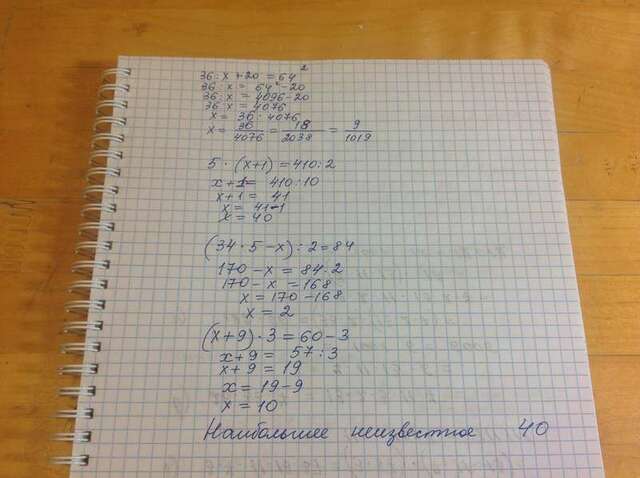 36 : x + 20 = 64²
36 : x = 64² - 20
36 : x = 4096 - 20
36 x = 4076
x = 36 : 4076
x = 36/4076 = 18/2038 = 9/1019
5 · (x+1) = 410 : 2
x + 1 = 410 : 10
x + 1 = 41
x = 41-1
x = 40
(34 · 5 - x) : 2 = 84
170 - x = 84 · 2
170 - x = 168
x = 170 - 168
x = 2
(x+9) · 3 = 60 - 3
x + 9 = 57 : 3
x + 9 = 19
x = 19 - 9
x = 10
Наибольшее неизвестное 40